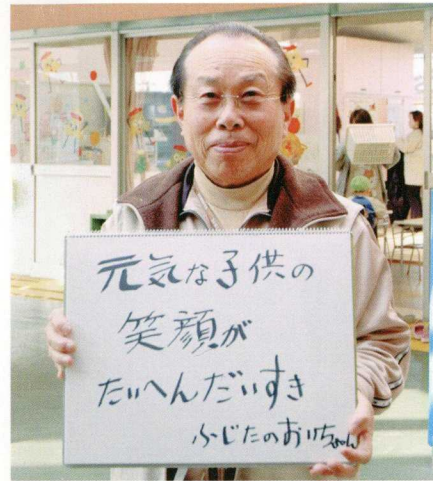 元気な子供の
笑顔が
たいへんだいすき
ふじたのおいちゃん